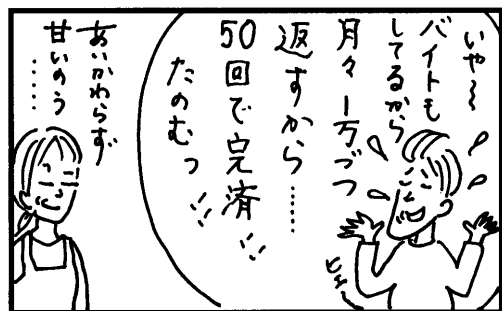 いや〜
バイトも
してるから
月々1万づつ
返すから……
50回で完済
たのむっ!!
ヒェ〜
あいかわらず
甘いのう
……